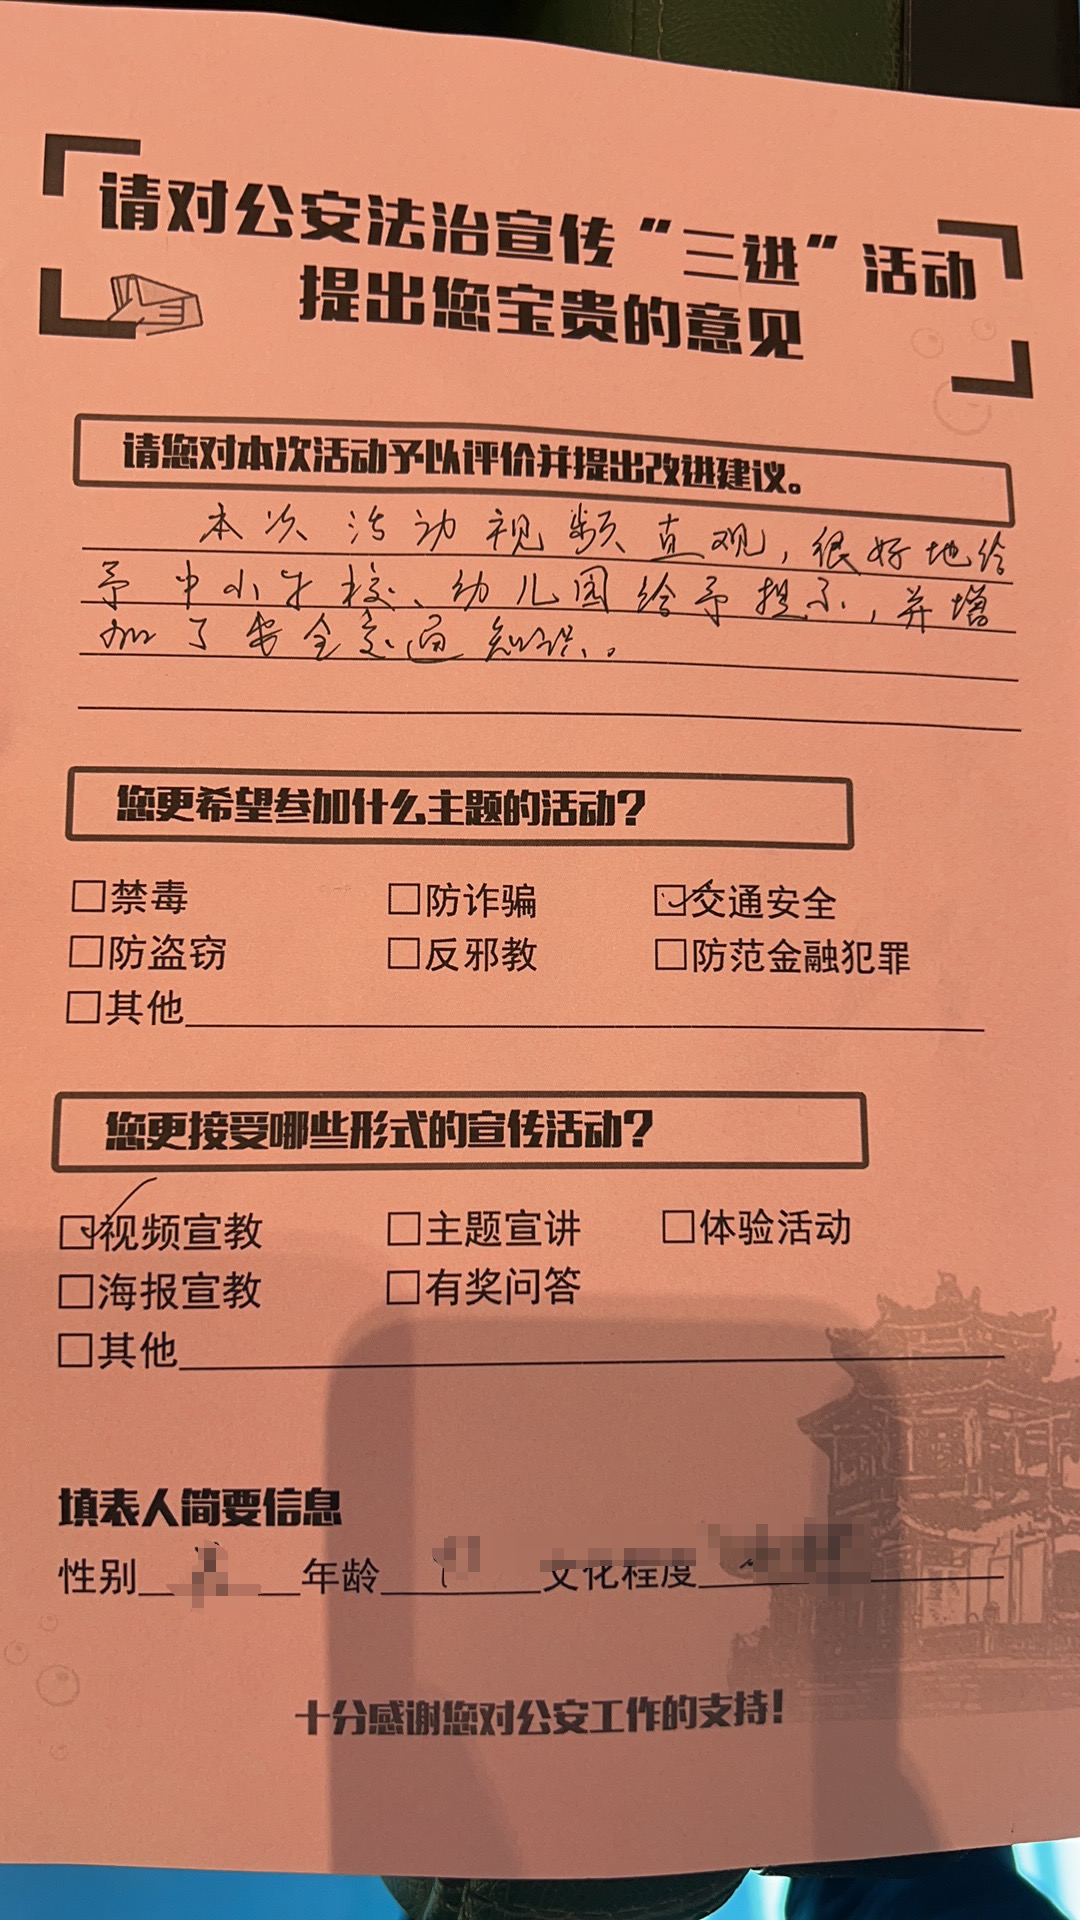 请对公安法治宣传“三进”活动
提出您宝贵的意见
请您对本次活动予以评价并提出改进建议。
本次活动视频直观，很好地给
予中小学校、幼儿园给予提示，并增
加了安全交通知识。
您更希望参加什么主题的活动？
□禁毒 □防诈骗 ☑交通安全
□防盗窃 □反邪教 □防范金融犯罪
□其他
您更接受哪些形式的宣传活动？
☑视频宣教 □主题宣讲 □体验活动
□海报宣教 □有奖问答
□其他
填表人简要信息
性别 年龄 文化程度
十分感谢您对公安工作的支持！